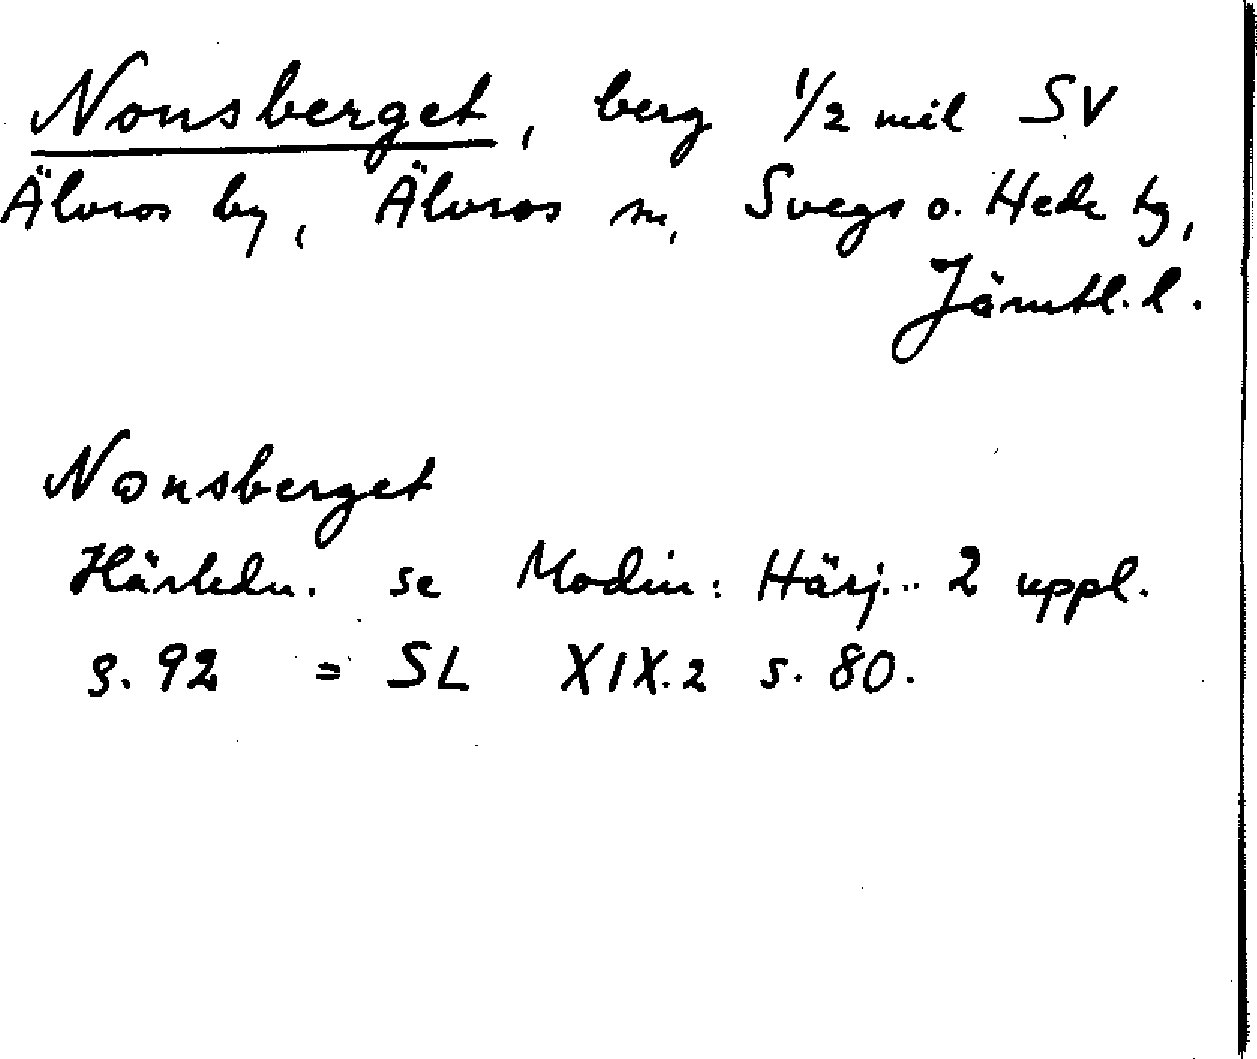 Nonsberget, berg 1/2 mil SV
Älvros by, Älvros sn, Svegs o. Hede tg,
Jämtl. l.
Nonsberget
Härledn. se Modin: Härj... 2 uppl.
s. 92 = SL XIX.2 s. 80.